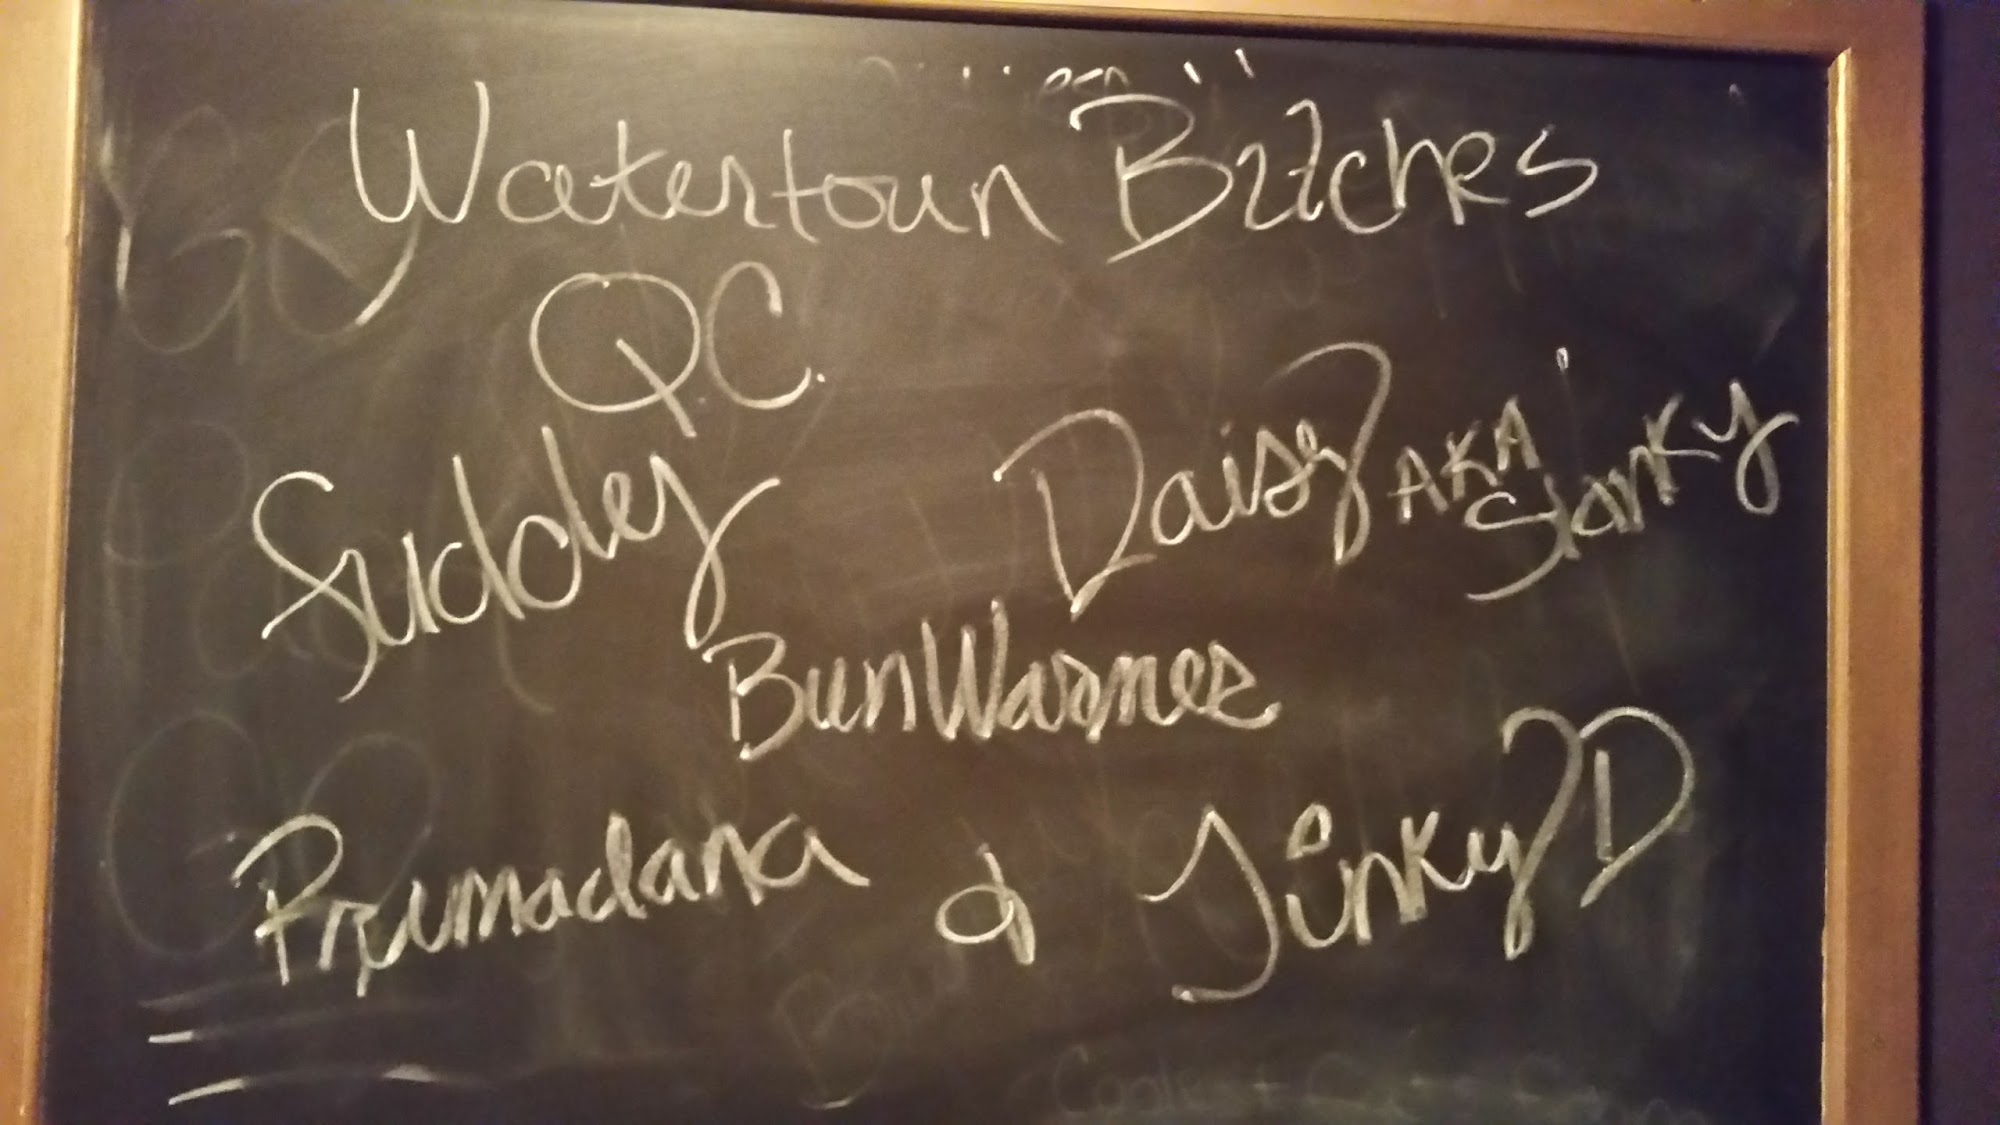 Watertown Bitches
QC.
Suddley
Daisy AKA Stanky
BunWarmer
Primadana & JinkyD